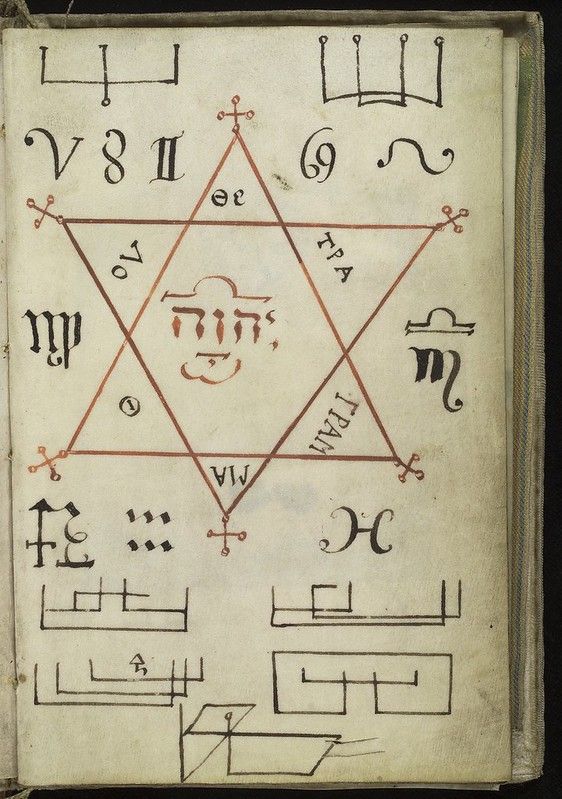 Θε
ΤΡΑ
יהוה
ΓΡΑΜ
ΜΑ